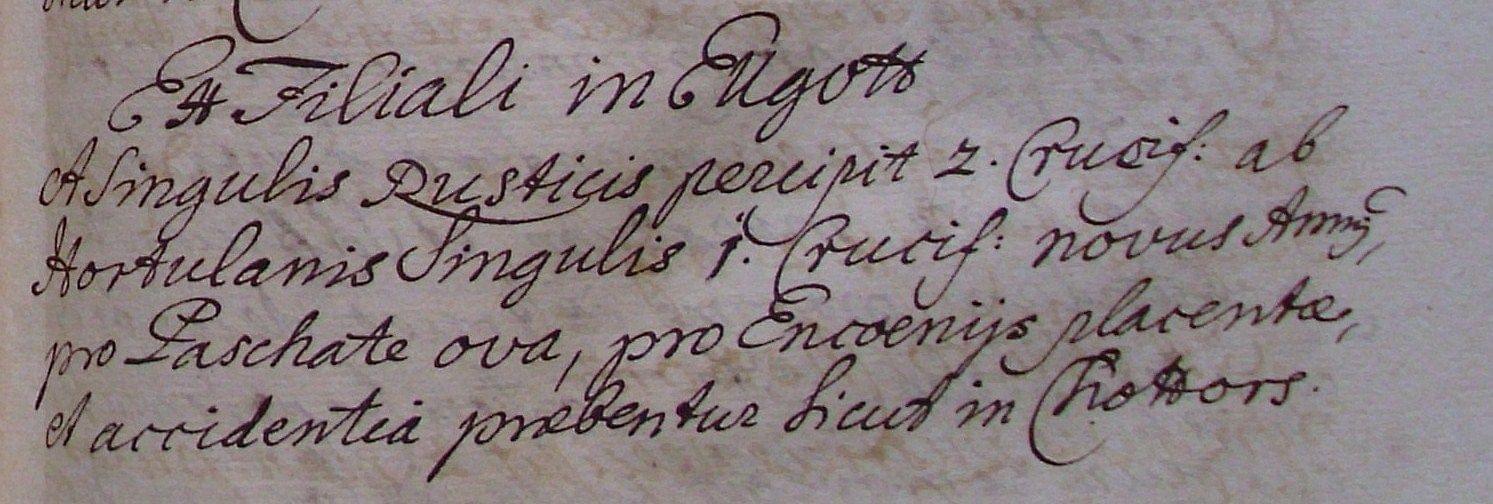 Ex Filiali in Ellgott
A Singulis Rusticis percipit 2. Crucif: ab
Hortulanis Singulis 1. Crucif: novus Annus,
pro Paschate ova, pro Encoenijs placentæ,
et accidentia præbentur sicut in